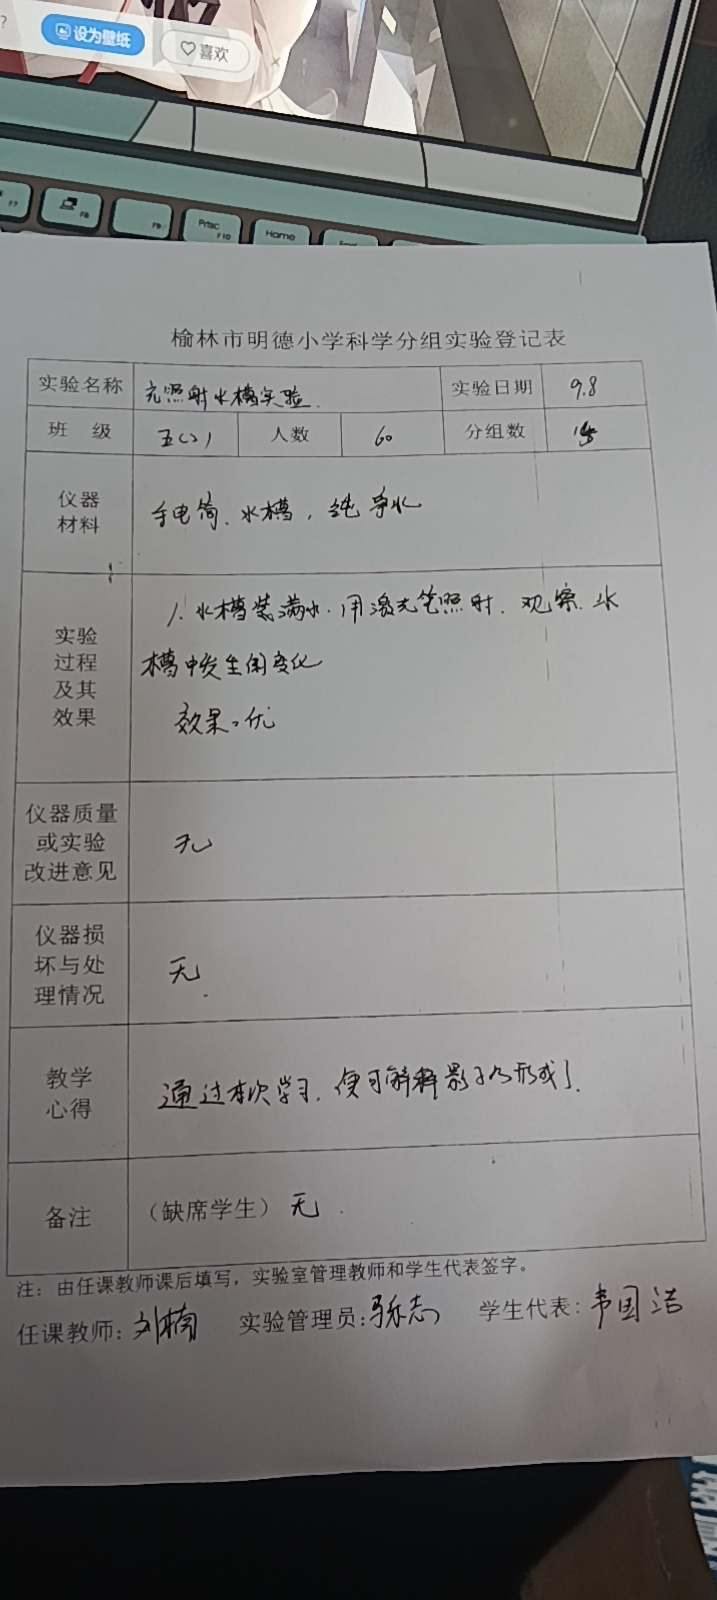 设为壁纸
喜欢
F7
F8
F9
PrtSc
F10
Home
榆林市明德小学科学分组实验登记表
实验名称 光照射水槽实验. 实验日期 9.8
班 级 五(2) 人数 60 分组数
仪器材料 手电筒、水槽,纯净水
实验过程及其效果
1. 水槽装满水.用激光笔照射.观察.水
槽中发生的变化
效果:优
仪器质量或实验改进意见 无
仪器损坏与处理情况 无
教学心得 通过本次学习.便可解释影子的形成了.
备注 (缺席学生) 无
注:由任课教师课后填写,实验室管理教师和学生代表签字。
任课教师:刘楠 实验管理员: 学生代表:韦国浩